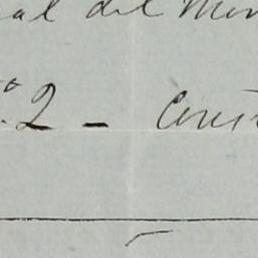 al del Mon
º.2 - Const